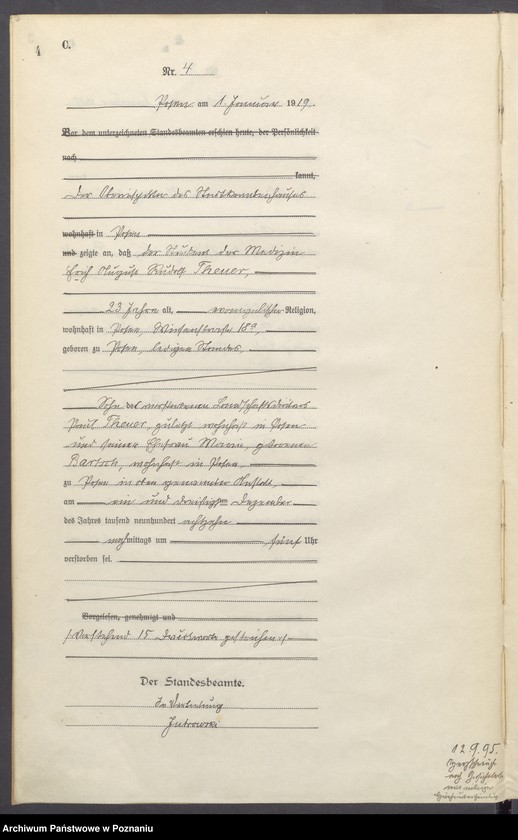 4
C.
Nr. 4
Posen am 1 Januar 1919.
Vor dem unterzeichneten Standesbeamten erschien heute, der Persönlichkeit
nach
kannt,
Der Oberinspektor des Stadtkrankenhauses
wohnhaft in Posen
und zeigte an, daß der Student der Medizin
Erich August Rudolf Theuer,
23 Jahre alt, evangelischer Religion,
wohnhaft in Posen,
geboren zu Posen, ledigen Standes,
Sohn des verstorbenen Landschaftsdirektors
Paul Theuer, zuletzt wohnhaft in Posen
und seiner Ehefrau Maria, geborenen
Bartsch, wohnhaft in Posen,
zu Posen in oben genannter Anstalt,
am ein und dreißigsten Dezember
des Jahres tausend neunhundert achtzehn
nachmittags um fünf Uhr
verstorben sei.
Vorgelesen, genehmigt und
/:Vorstehend 15 Druckworte gestrichen:/
Der Standesbeamte.
In Vertretung
12.9.95.
Archiwum Państwowe w Poznaniu